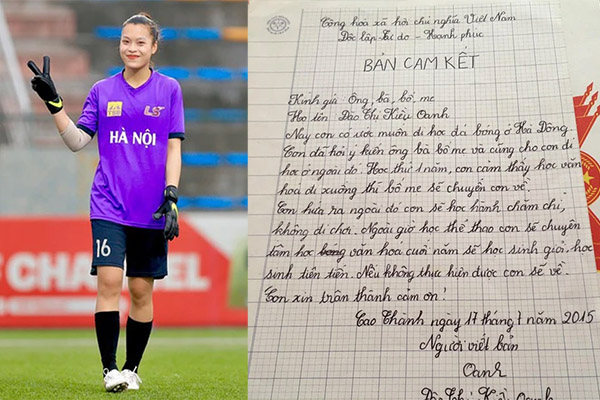 LS
HÀ NỘI
16
CHANNEL
Cộng hoà xã hội chủ nghĩa Việt Nam
Độc lập Tự do - Hạnh phúc
BẢN CAM KẾT
Kính gửi Ông, bà, bố mẹ
Họ tên Đào Thị Kiều Oanh
Nay con có ước muốn đi học đá bóng ở Hà Đông.
Con đã hỏi ý kiến ông bà bố mẹ và cũng cho con đi
học ở ngoài đó. Học thử 1 năm, con cảm thấy học văn
hoá đi xuống thì bố mẹ sẽ chuyển con về.
Con hứa ra ngoài đó con sẽ học hành chăm chỉ,
không đi chơi. Ngoài giờ học thể thao con sẽ chuyên
tâm học bóng văn hoá cuối năm sẽ học sinh giỏi, học
sinh tiên tiến. Nếu không thực hiện được con sẽ về.
Con xin trân thành cảm ơn!
Cao Thành ngày 17 tháng 7 năm 2015
Người viết bản
Oanh
Đào Thị Kiều Oanh